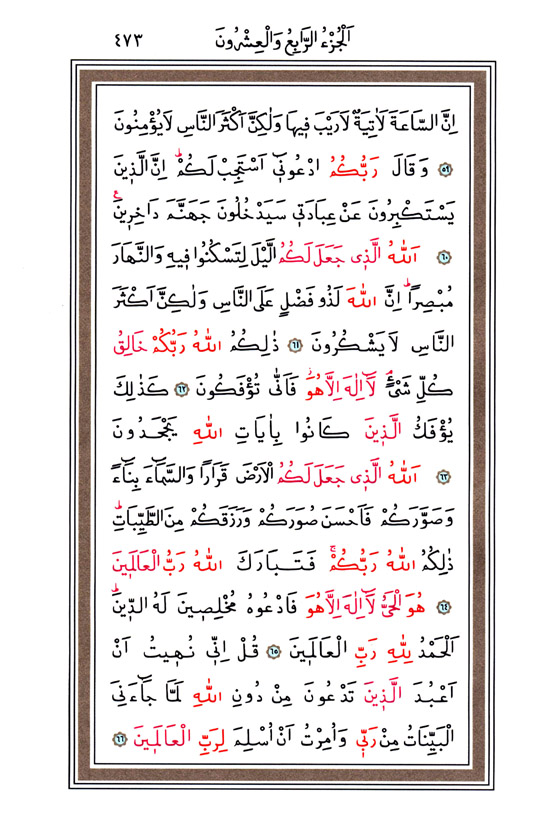 اَلْجُزْءُ الرَّابِعُ وَالْعِشْرُونَ ٤٧٣
اِنَّ السَّاعَةَ لَاٰتِيَةٌ لَارَيْبَ فِيهَا وَلٰكِنَّ اَكْثَرَ النَّاسِ لَايُؤْمِنُونَ
﴿٥٩﴾ وَقَالَ رَبُّكُمُ ادْعُونِٓي اَسْتَجِبْ لَكُمْۜ اِنَّ الَّذِينَ
يَسْتَكْبِرُونَ عَنْ عِبَادَتِي سَيَدْخُلُونَ جَهَنَّمَ دَاخِرِينَ۟
﴿٦٠﴾ اَللّٰهُ الَّذِي جَعَلَ لَكُمُ الَّيْلَ لِتَسْكُنُوا فِيهِ وَالنَّهَارَ
مُبْصِرًاۜ اِنَّ اللّٰهَ لَذُو فَضْلٍ عَلَى النَّاسِ وَلٰكِنَّ اَكْثَرَ
النَّاسِ لَا يَشْكُرُونَ ﴿٦١﴾ ذٰلِكُمُ اللّٰهُ رَبُّكُمْ خَالِقُ
كُلِّ شَيْءٍۢ لَٓا اِلٰهَ اِلَّا هُوَۘ فَاَنّٰى تُؤْفَكُونَ ﴿٦٢﴾ كَذٰلِكَ
يُؤْفَكُ الَّذِينَ كَانُوا بِاٰيَاتِ اللّٰهِ يَجْحَدُونَ
﴿٦٣﴾ اَللّٰهُ الَّذِي جَعَلَ لَكُمُ الْاَرْضَ قَرَارًا وَالسَّمَٓاءَ بِنَٓاءً
وَصَوَّرَكُمْ فَاَحْسَنَ صُوَرَكُمْ وَرَزَقَكُمْ مِنَ الطَّيِّبَاتِۜ
ذٰلِكُمُ اللّٰهُ رَبُّكُمْۚ فَتَبَارَكَ اللّٰهُ رَبُّ الْعَالَمِينَ
﴿٦٤﴾ هُوَ الْحَيُّ لَٓا اِلٰهَ اِلَّا هُوَ فَادْعُوهُ مُخْلِصِينَ لَهُ الدِّينَۜ
اَلْحَمْدُ لِلّٰهِ رَبِّ الْعَالَمِينَ ﴿٦٥﴾ قُلْ اِنِّي نُهِيتُ اَنْ
اَعْبُدَ الَّذِينَ تَدْعُونَ مِنْ دُونِ اللّٰهِ لَمَّا جَٓاءَنِيَ
الْبَيِّنَاتُ مِنْ رَبِّي وَاُمِرْتُ اَنْ اُسْلِمَ لِرَبِّ الْعَالَمِينَ ﴿٦٦﴾